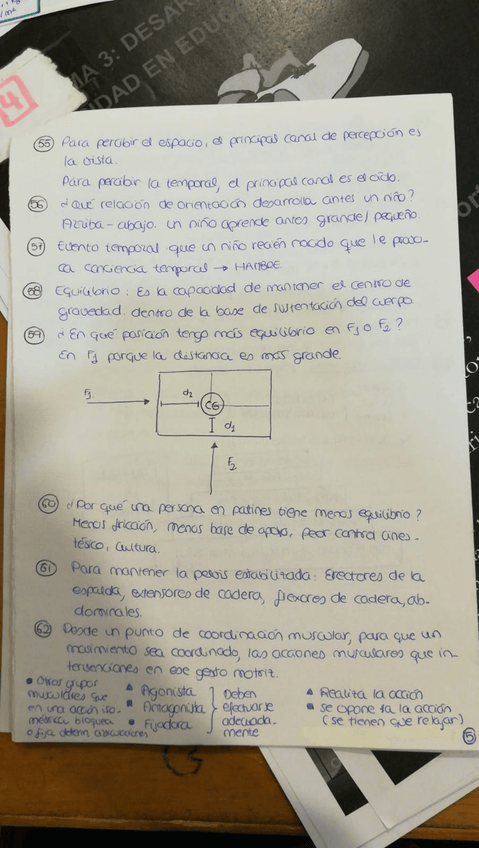 4
MA 3: DESAR
IDAD EN EDU
55 Para percibir el espacio, el principal canal de percepción es
la vista.
Para percibir la temporal, el principal canal es el oído.
56 ¿Qué relación de orientación desarrolla antes un niño?
Arriba-abajo. Un niño aprende antes grande/pequeño
57 Evento temporal que un niño recién nacido que le provo-
ca conciencia temporal → HAMBRE
58 Equilibrio: Es la capacidad de mantener el centro de
gravedad dentro de la base de sustentación del cuerpo.
59 ¿En qué posición tengo más equilibrio en F1 o F2?
En F1 porque la distancia es más grande.
F1
d2
CG
d1
F2
60 ¿Por qué una persona en patines tiene menos equilibrio?
Menos fricción, menos base de apoyo, peor control cines-
tésico, cultura.
61 Para mantener la pelvis estabilitada: Erectores de la
espalda, extensores de cadera, flexores de cadera, ab-
dominales.
62 Desde un punto de coordinación muscular, para que un
movimiento sea coordinado, las acciones musculares que in
tervenciones en ese gesto motriz.
• Otros grupos
musculares que
en una acción iso-
métrica bloquea
o fija
▲ Agonista
■ Antagonista
• Fijadora
Deben
efectuarse
adecuada-
mente
▲ Realiza la acción
■ se opone a la acción
(se tienen que relajar)
5